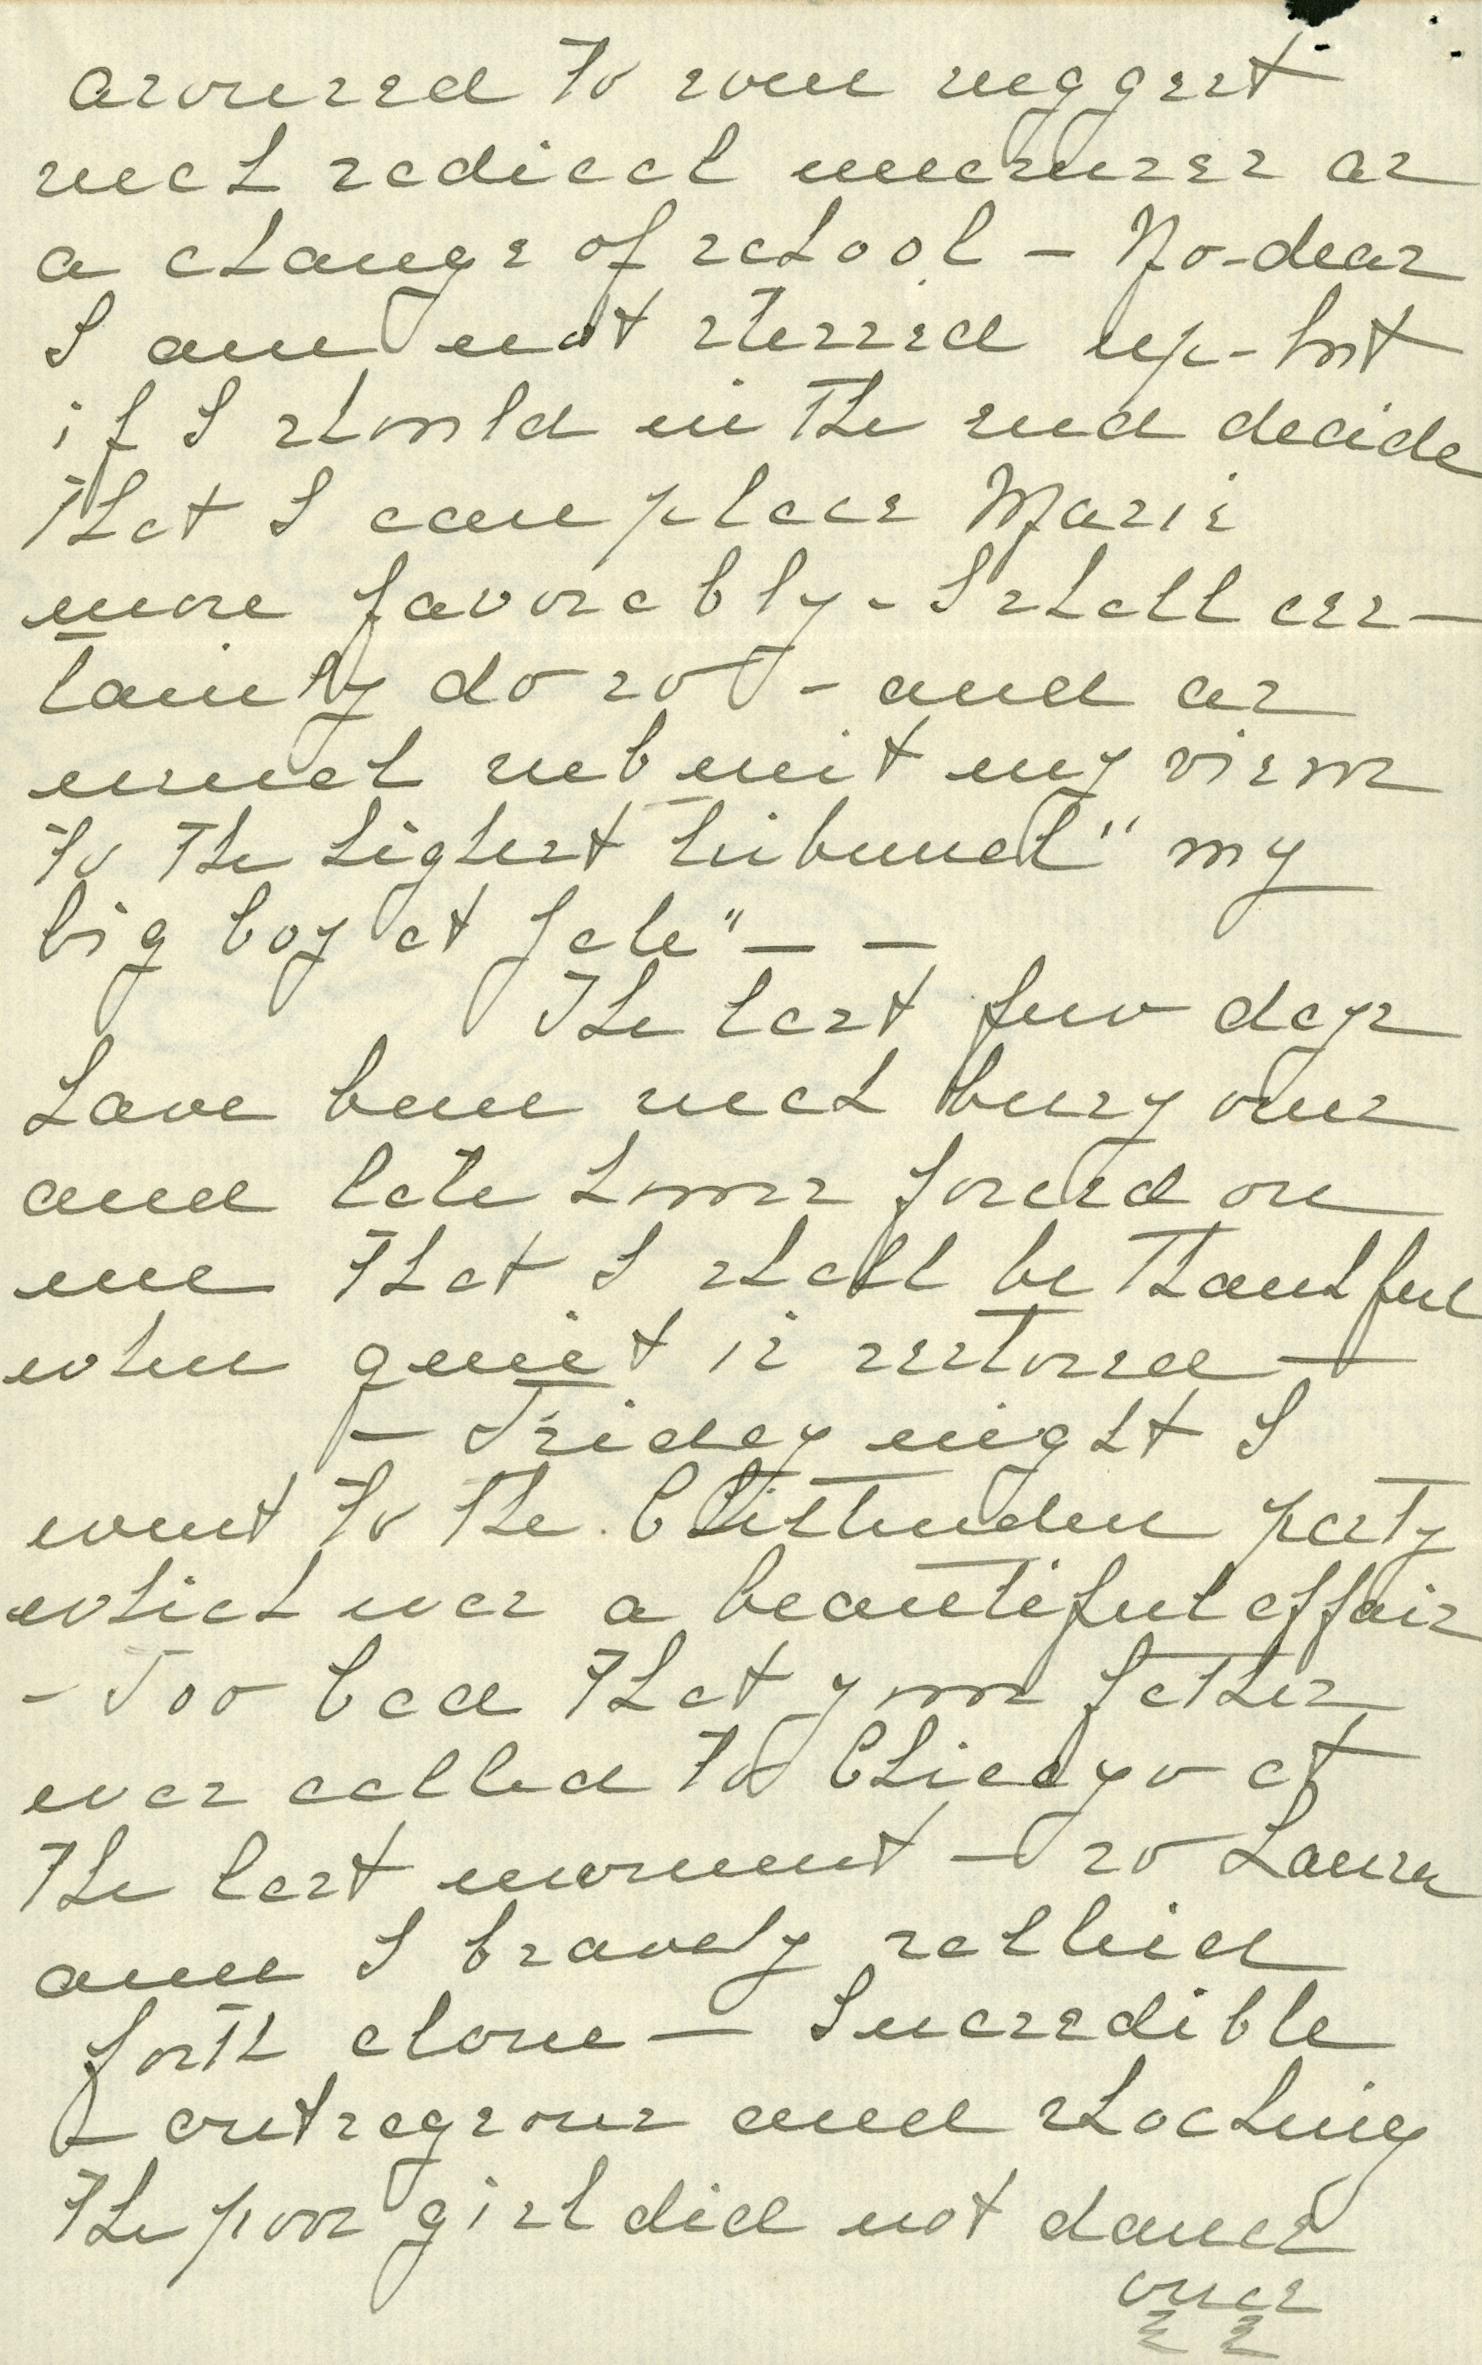 aroused to even suggest
such radical measures as
a change of school – No-dear
I am not stirred up - but
if I should in the end decide
that I can place Marie
more favorably - I shall cer-
tainly do so – and as
usual submit my views
to the highest tribunal" my
big boy at Yale" – –
The last few days
have been such busy ones
and late hours forced on
me that I shall be thankful
when quiet is restored –
– Friday night I
went to the Chittenden party
which was a beautiful affair
– Too bad that your father
was called to Chicago at
the last moment – so Laura
and I bravely sallied
forth alone – Incredible
– outrageous and shocking
the poor girl did not dance
once